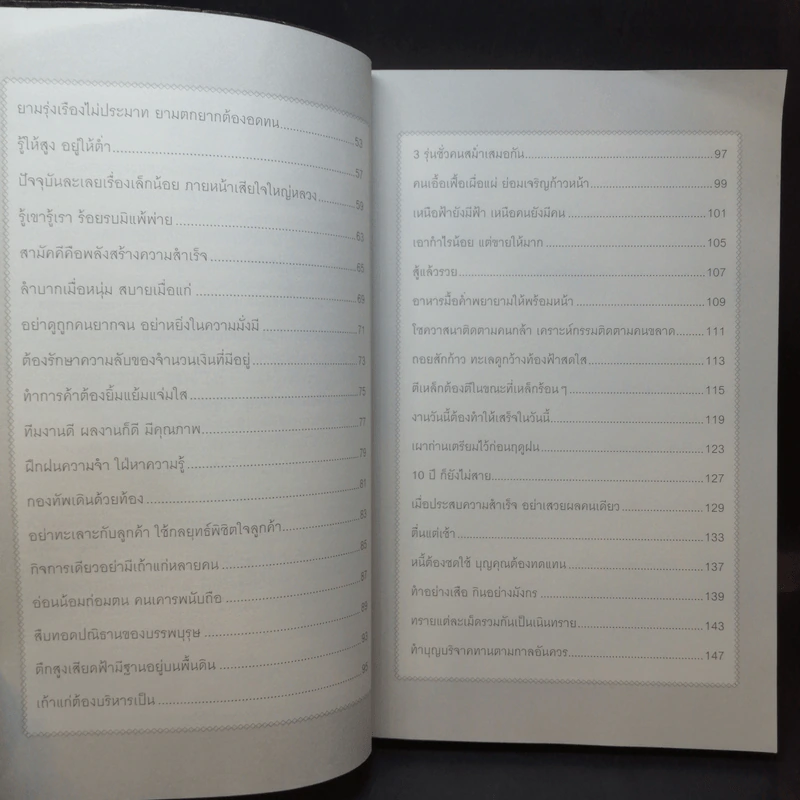 ยามรุ่งเรืองไม่ประมาท ยามตกยากต้องอดทน.....53
รู้ให้สูง อยู่ให้ต่ำ.....57
ปัจจุบันละเลยเรื่องเล็กน้อย ภายหน้าเสียใจใหญ่หลวง.....59
รู้เขารู้เรา ร้อยรบมิแพ้พ่าย.....63
สามัคคีคือพลังสร้างความสำเร็จ.....65
ลำบากเมื่อหนุ่ม สบายเมื่อแก่.....69
อย่าดูถูกคนยากจน อย่าหยิ่งในความมั่งมี.....71
ต้องรักษาความลับของจำนวนเงินที่มีอยู่.....73
ทำการค้าต้องยิ้มแย้มแจ่มใส.....75
ทีมงานดี ผลงานก็ดี มีคุณภาพ.....77
ฝึกฝนความจำ ใฝ่หาความรู้.....79
กองทัพเดินด้วยท้อง.....81
อย่าทะเลาะกับลูกค้า ใช้กลยุทธ์พิชิตใจลูกค้า.....83
กิจการเดียวอย่ามีเถ้าแก่หลายคน.....85
อ่อนน้อมถ่อมตน คนเคารพนับถือ.....87
สืบทอดปณิธานของบรรพบุรุษ.....89
ตึกสูงเสียดฟ้ามีฐานอยู่บนพื้นดิน.....93
เถ้าแก่ต้องบริหารเป็น.....95
3 รุ่นชั่วคนสม่ำเสมอกัน.....97
คนเอื้อเฟื้อเผื่อแผ่ ย่อมเจริญก้าวหน้า.....99
เหนือฟ้ายังมีฟ้า เหนือคนยังมีคน.....101
เอากำไรน้อย แต่ขายให้มาก.....105
สู้แล้วรวย.....107
อาหารมื้อค่ำพยายามให้พร้อมหน้า.....109
โชควาสนาติดตามคนกล้า เคราะห์กรรมติดตามคนขลาด.....111
ถอยสักก้าว ทะเลดูกว้างท้องฟ้าสดใส.....113
ตีเหล็กต้องตีในขณะที่เหล็กร้อนๆ.....115
งานวันนี้ต้องทำให้เสร็จในวันนี้.....119
เผาถ่านเตรียมไว้ก่อนฤดูฝน.....123
10 ปี ก็ยังไม่สาย.....127
เมื่อประสบความสำเร็จ อย่าเสวยผลคนเดียว.....129
ตื่นแต่เช้า.....133
หนี้ต้องชดใช้ บุญคุณต้องทดแทน.....137
ทำอย่างเสือ กินอย่างมังกร.....139
ทรายแต่ละเม็ดรวมกันเป็นเนินทราย.....143
ทำบุญบริจาคทานตามกาลอันควร.....147